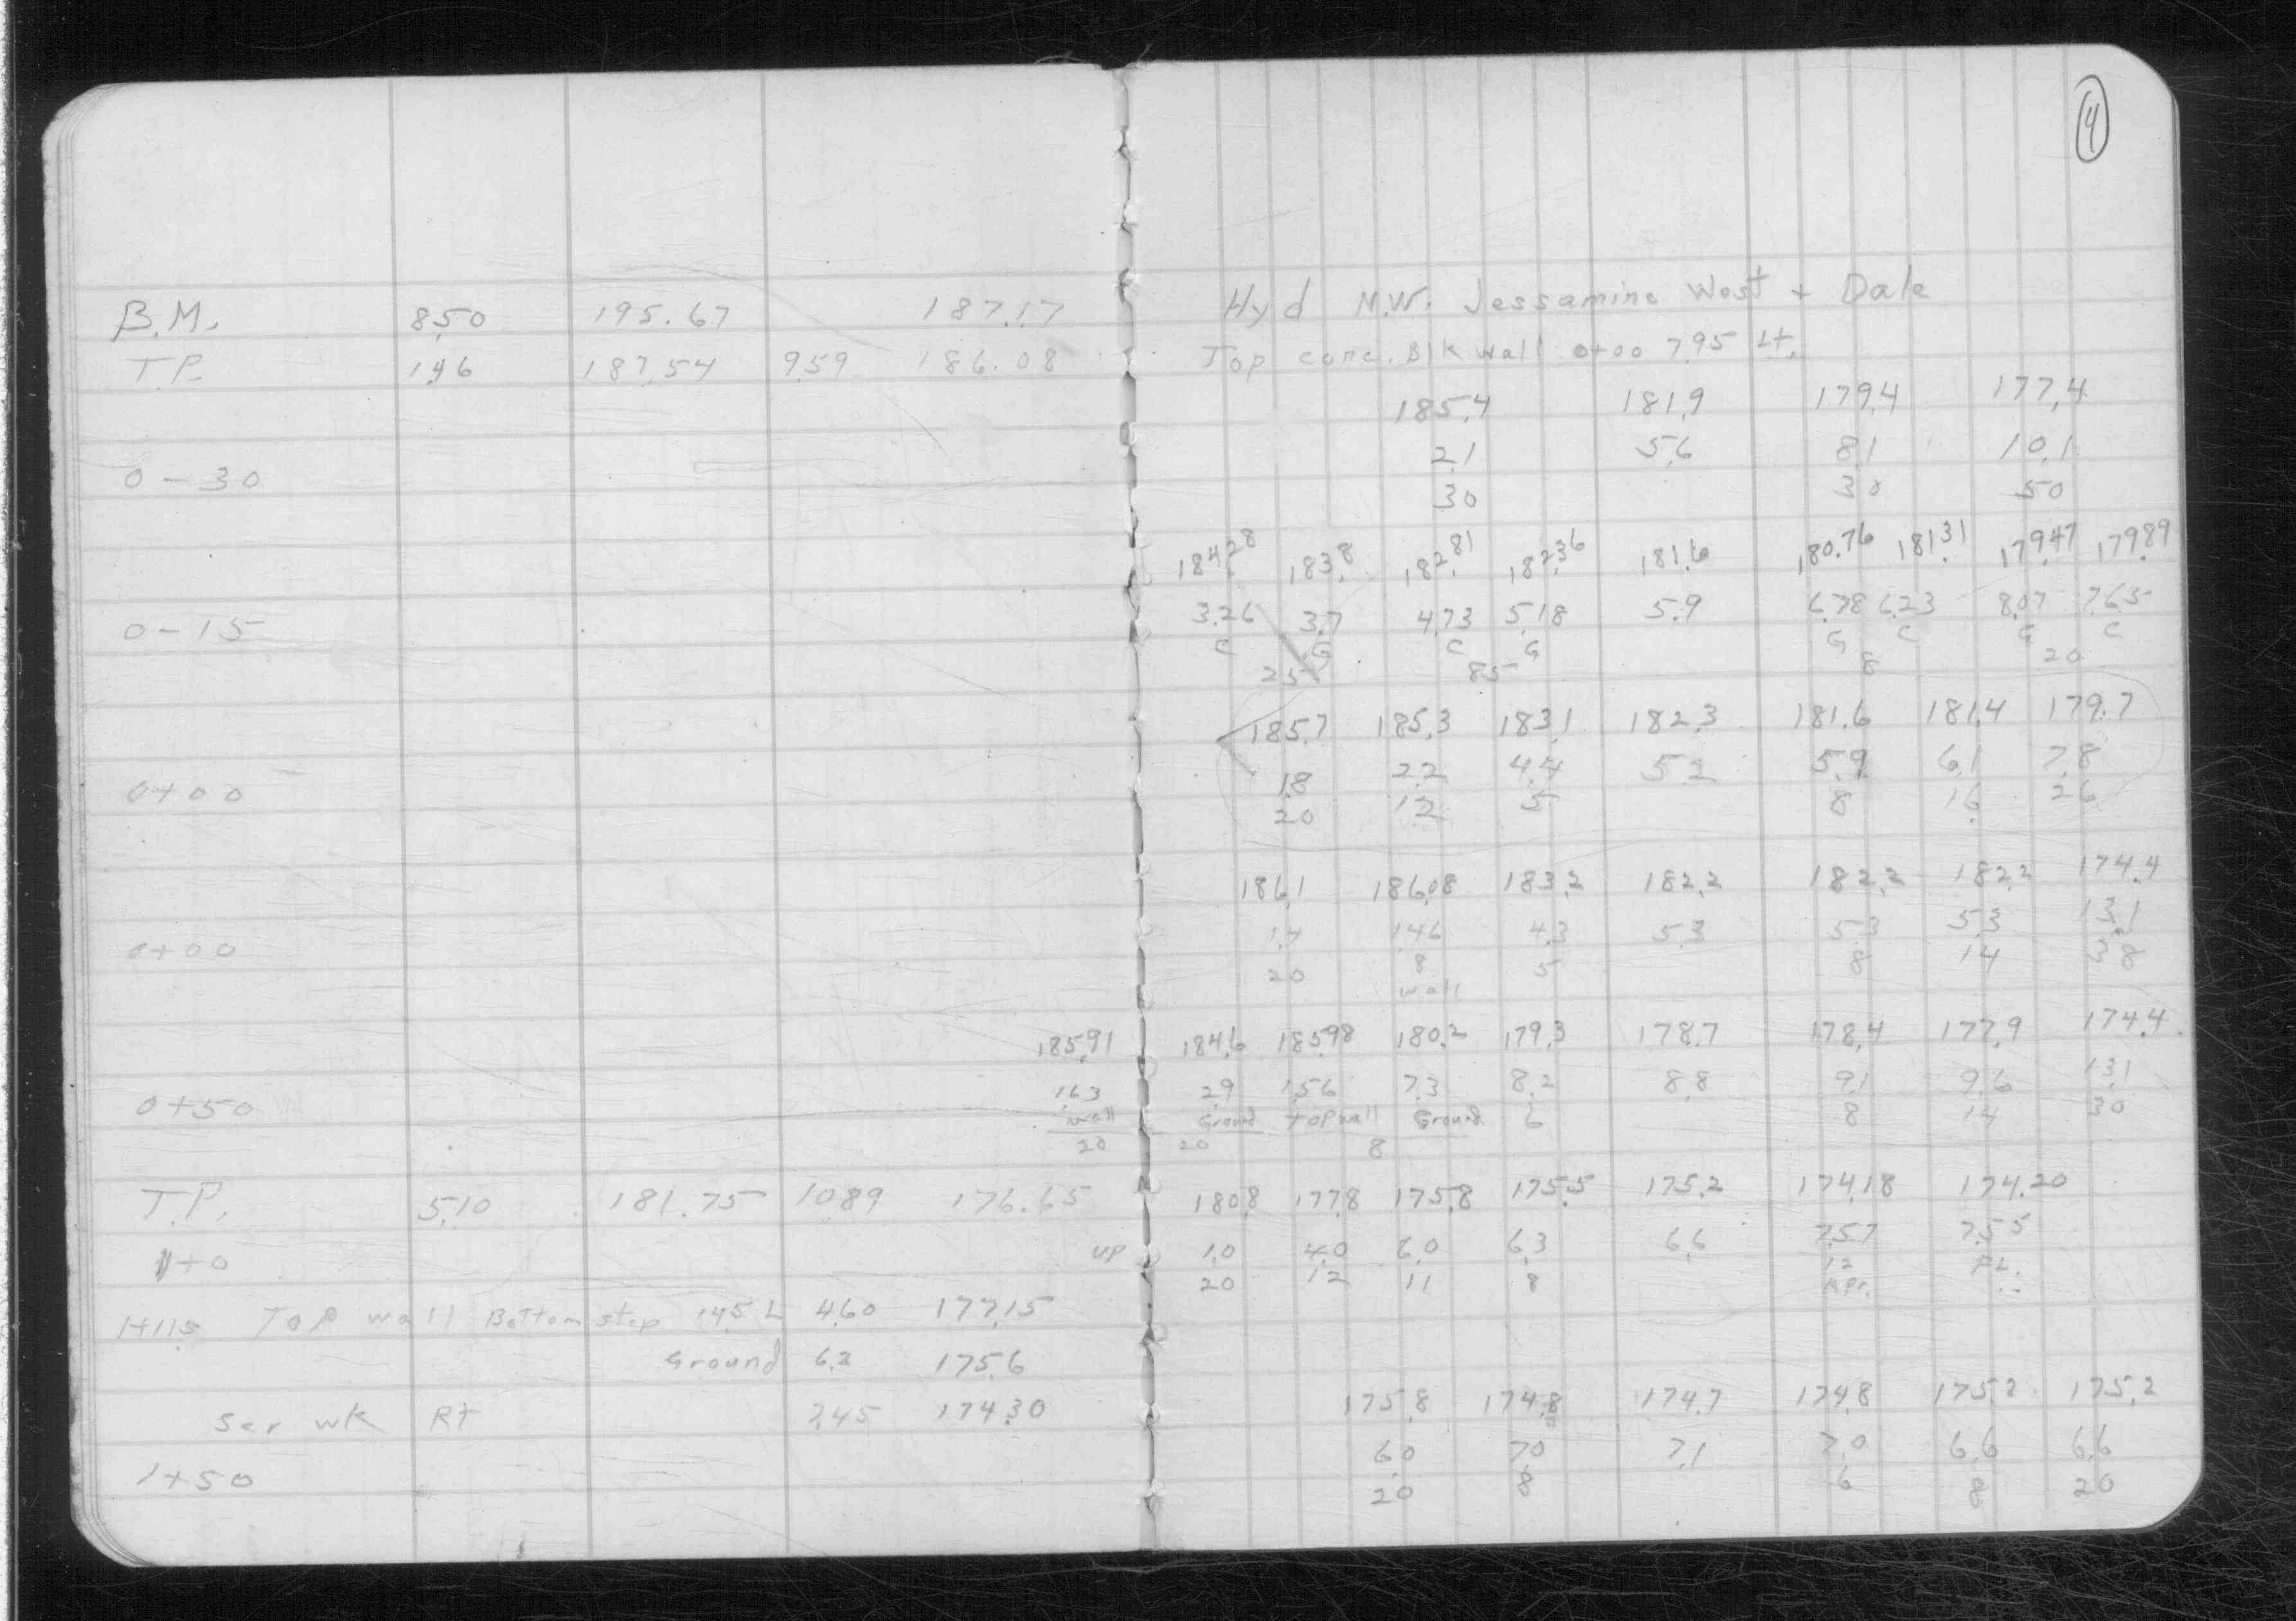 4
B.M. 8.50 195.67 187.17 Hyd N.W. Jessamine West + Dale
T.P. 1.46 187.54 9.59 186.08 Top conc. Blk wall 0+00 7.95 Lt.
185.4 181.9 179.4 177.4
2.1 5.6 8.1 10.1
0-30 30 30 50
184.28 183.8 182.81 182.36 181.6 180.76 181.31 179.47 179.89
0-15 3.26 3.7 4.73 5.18 5.9 6.78 6.23 8.07 7.65
C G C G G C G C
25 85 8 20
185.7 185.3 183.1 182.3 181.6 181.4 179.7
1.8 2.2 4.4 5.2 5.9 6.1 7.8
0+00 20 12 5 8 16 26
186.1 186.08 183.2 182.2 182.2 182.2 174.4
0+00 1.4 1.46 4.3 5.3 5.3 5.3 13.1
20 8 5 8 14 38
wall
185.91 184.6 185.98 180.2 179.3 178.7 178.4 177.9 174.4
0+50 1.63 2.9 1.56 7.3 8.2 8.8 9.1 9.6 13.1
wall Ground Top wall Ground 6 8 14 30
20 20 8
T.P. 5.10 181.75 10.89 176.65 180.8 177.8 175.8 175.5 175.2 174.18 174.20
1+0 up 1.0 4.0 6.0 6.3 6.6 7.57 7.55
20 12 11 8 12 PL.
1+11.5 Top wall Bottom step 14.5 L 4.60 177.15
Ground 6.2 175.6
Ser wk Rt 7.45 174.30 175.8 174.8 174.7 174.8 175.2 175.2
1+50 6.0 7.0 7.1 7.0 6.6 6.6
20 8 6 8 20